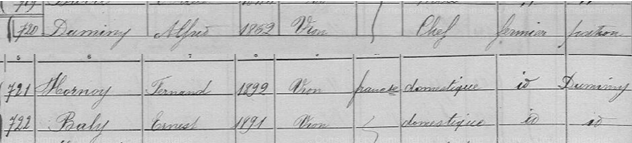 720 Duminy Alfred 1852 Vion Chef fermier patron
721 Hornoy Fernand 1899 Vion francse domestique id Duminy
722 Baly Ernest 1891 Vion domestique id id